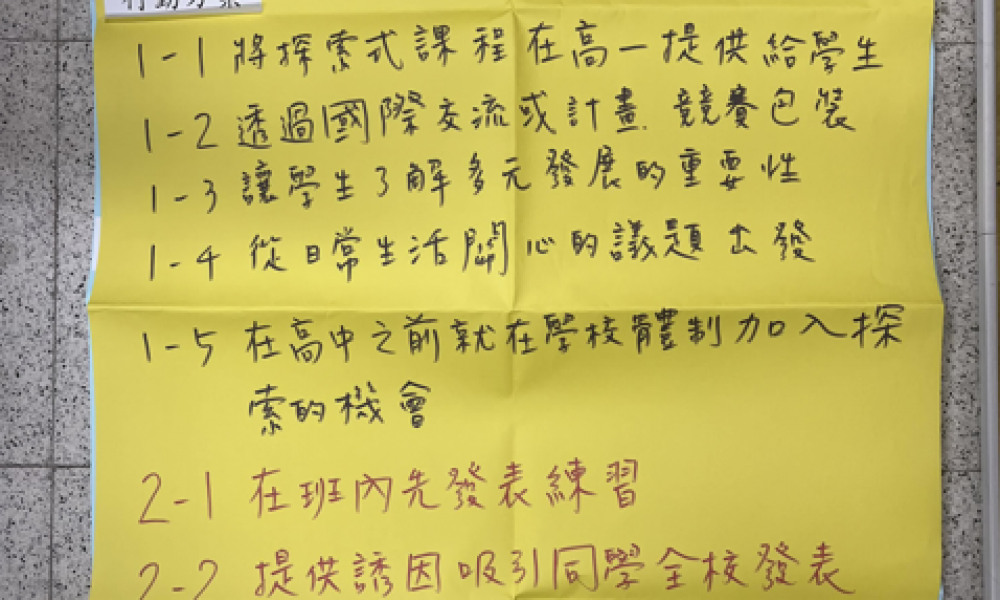 行動方案
1-1 將探索式課程在高一提供給學生
1-2 透過國際交流或計畫、競賽包裝
1-3 讓學生了解多元發展的重要性
1-4 從日常生活關心的議題出發
1-5 在高中之前就在學校體制加入探
索的機會
2-1 在班內先發表練習
2-2 提供誘因吸引同學全校發表